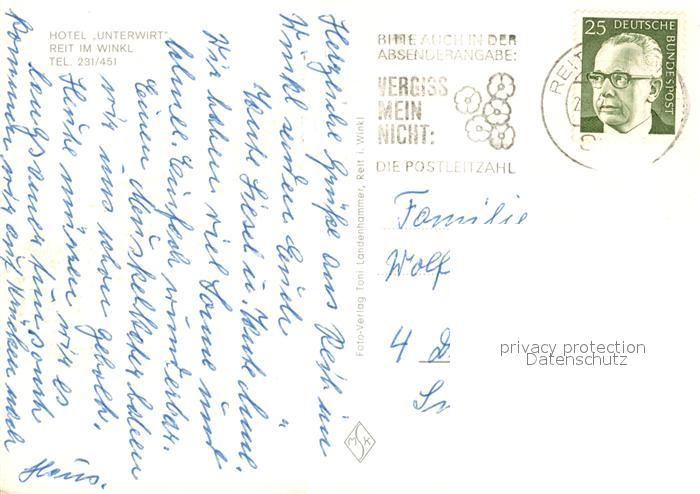 HOTEL „UNTERWIRT"
REIT IM WINKL
TEL. 231/451
Herzliche Grüße aus Reit im
Winkl senden Euch
Heute Liesel u.
Wir haben viel Sonne und
Schnee. Einfach wunderbar.
Einen Muskelkater haben
wir uns schon geholt.
Heute müssen wir es
langsamer tun sonst
kommen wir auf Krücken nach
Haus.
Foto-Verlag Toni Landenhammer, Reit i. Winkl
MSK
BITTE AUCH IN DER
ABSENDERANGABE:
VERGISS
MEIN
NICHT:
DIE POSTLEITZAHL
REIT
25 DEUTSCHE
BUNDESPOST
Familie
Wolf
4 D
privacy protection
Datenschutz